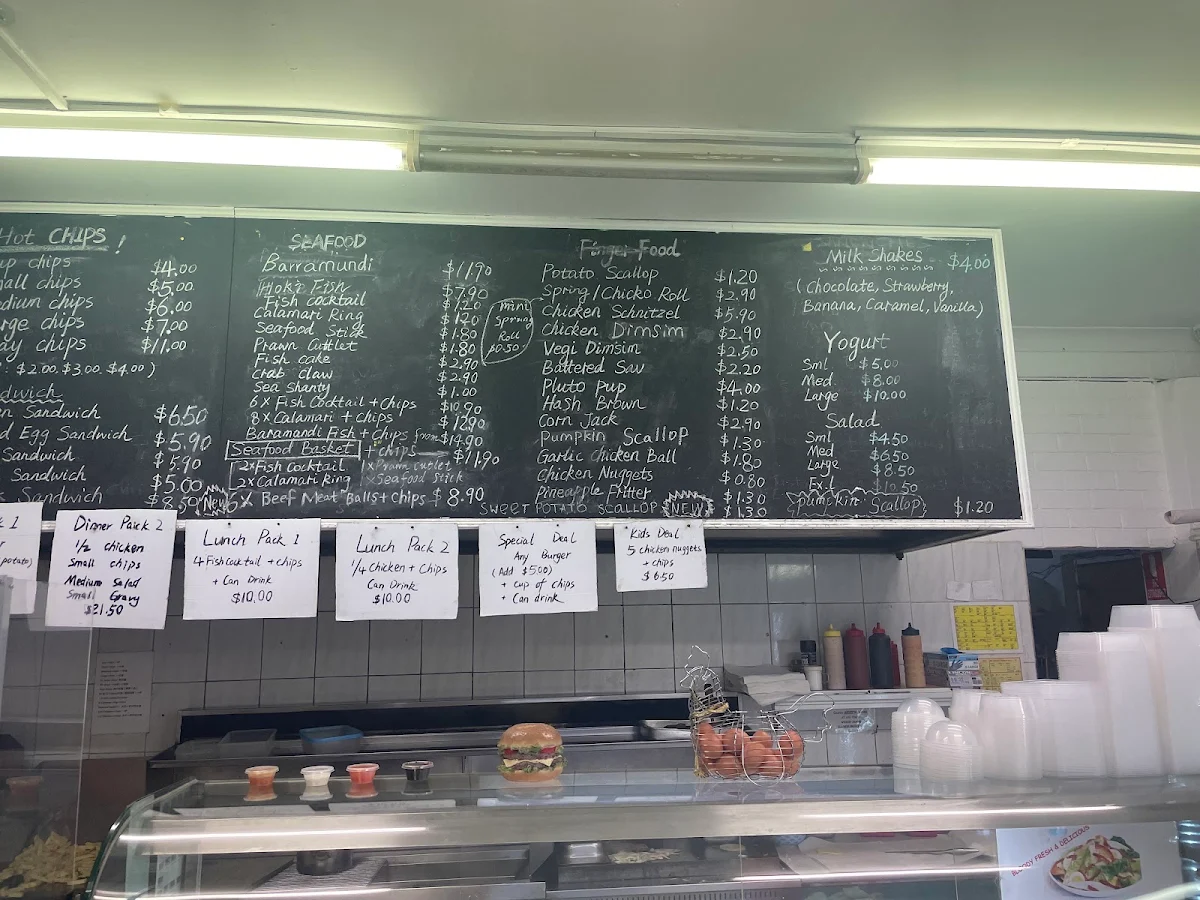 Hot CHIPS !
up chips $4.00
all chips $5.00
dium chips $6.00
rge chips $7.00
ay chips $11.00
: $2.00.$3.00.$4.00)
dwich
n Sandwich $6.50
d Egg Sandwich $5.90
Sandwich $5.90
Sandwich $5.00
Sandwich $8.50
SEAFOOD
Barramundi $11.90
Hoki Fish $7.90
Fish cocktail $1.20
Calamari Ring $1.20
Seafood Stick $1.80
Prawn Cutlet $1.80
Fish cake $2.90
Crab claw $2.90
Sea Shanty $1.00
6 x Fish Cocktail + chips $10.90
8 x Calamari + chips $12.90
Baramandi Fish + Chips from $14.90
Seafood Basket + chips $11.90
2xFish Cocktail 1xPrawn cutlet
2xCalamari Ring 1xSeafood Stick
New 6 X Beef Meat Balls + chips - $8.90
Finger Food
Potato Scallop $1.20
Spring/Chicko Roll $2.90
Chicken Schnitzel $5.90
Chicken Dimsim $2.90
Vegi Dimsim $2.50
Battered Sav $2.20
Pluto pup $4.00
Hash Brown $1.20
Corn Jack $2.90
Pumpkin Scallop $1.30
Garlic chicken Ball $1.80
Chicken Nuggets $0.80
Pineapple Fritter $1.30
SWEET POTATO SCALLOP NEW $1.30
mini
Spring
Roll
$0.50
Milk Shakes $4.00
(Chocolate, Strawberry,
Banana, Caramel, Vanilla)
Yogurt
Sml $5.00
Med. $8.00
Large $10.00
Salad
Sml $4.50
Med $6.50
Large $8.50
Ex.L $10.50
Pumpkin Scallop $1.20
k 1
potato)
Dinner Pack 2
1/2 chicken
Small chips
Medium Salad
Small Gravy
$21.50
Lunch Pack 1
4 Fish Cocktail + chips
+ Can Drink
$10.00
Lunch Pack 2
1/4 Chicken + Chips
Can Drink
$10.00
Special Deal
Any Burger
(Add $5.00)
+ cup of chips
+ Can drink
Kids Deal
5 chicken nuggets
+ chips
$6.50
BLOODY FRESH & DELICIOUS